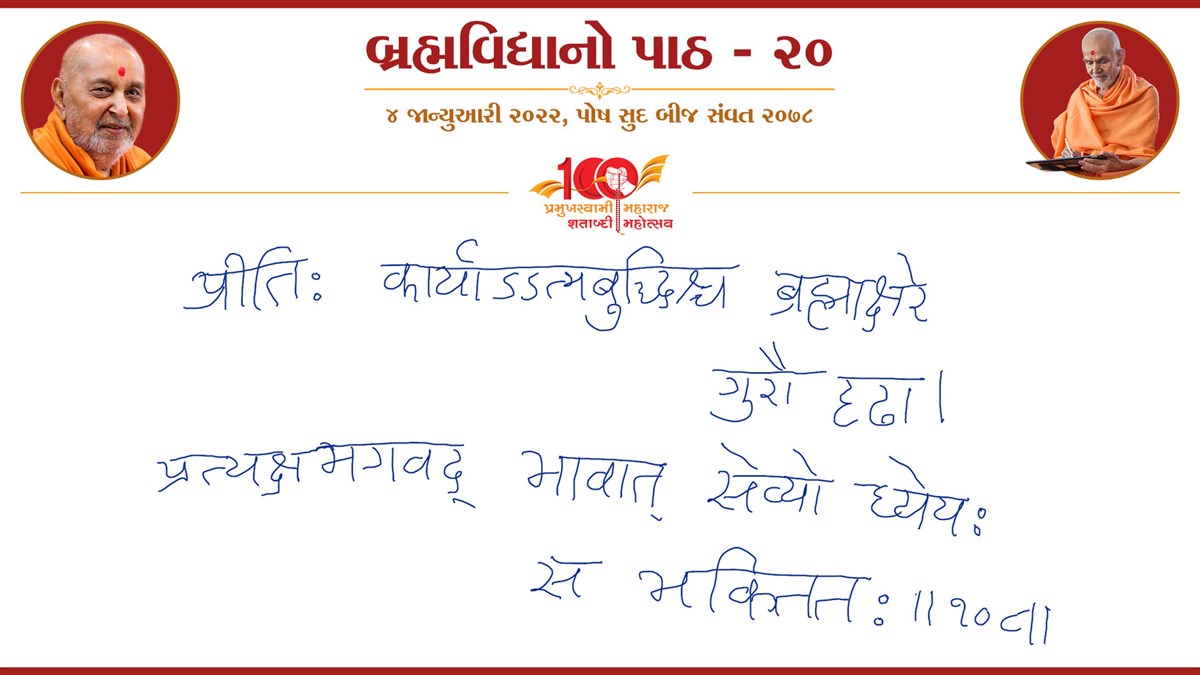 બ્રહ્મવિદ્યાનો પાઠ - ૨૦
૪ જાન્યુઆરી ૨૦૨૨, પોષ સુદ બીજ સંવત ૨૦૭૮
100
પ્રમુખસ્વામી મહારાજ
શતાબ્દી મહોત્સવ
प्रीतिः कार्याऽऽत्मबुद्धिश्च ब्रह्माक्षरे
गुरौ दृढा।
प्रत्यक्षभगवद् भावात् सेव्यो ध्येयः
स भक्तितः॥१०८॥